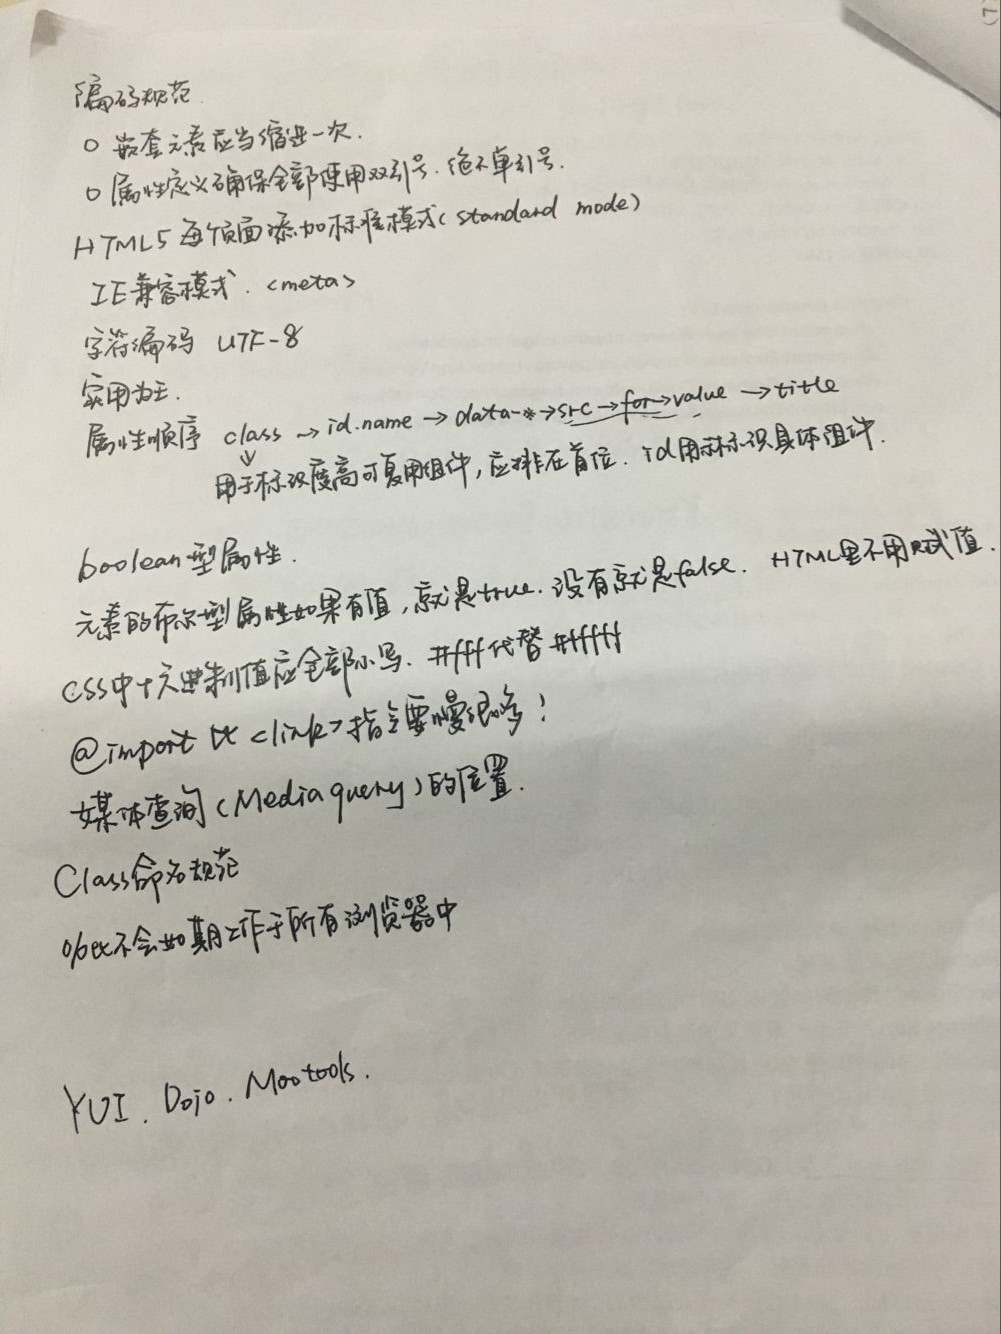 编码规范.
○ 嵌套元素应当缩进一次.
○ 属性定义确保全部使用双引号.绝不单引号.
HTML5 每个页面添加标准模式(standard mode)
IE兼容模式. <meta>
字符编码 UTF-8
实用为主.
属性顺序 class → id.name → data-* → src → for → value → title
↓
用于标识度高可复用组件,应排在首位. id用来标识具体组件.
boolean型属性.
元素的布尔型属性如果有值,就是true.没有就是false. HTML里不用赋值.
CSS中十六进制值应全部小写. #fff代替#ffffff
@import比<link>指令要慢很多!
媒体查询(Media query)的位置.
Class命名规范
不会如期工作于所有浏览器中
YUI. Dojo. Mootools.